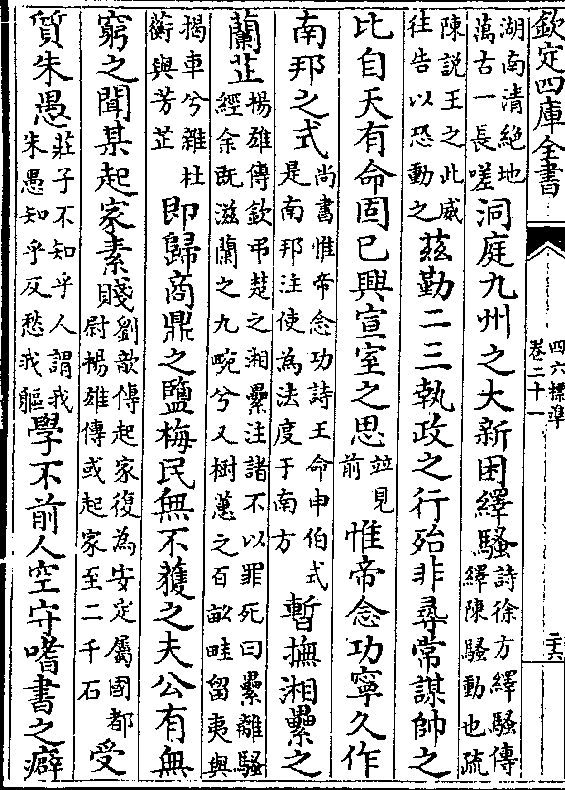 欽定四庫全書
四六標準
卷二十一
二十六
湖南清絶地萬古一長嗟洞庭九州之大新困繹騷詩徐方繹騷傳繹陳騷動也疏
陳說王之此威往告以恐動之兹勤二三執政之行殆非尋常謀帥之
比自天有命固已興宣室之思竝見前惟帝念功寧久作
南邦之式尚書惟帝念功詩王命申伯式是南邦注使為法度于南方暫撫湘纍之
蘭芷楊雄傳欽弔楚之湘纍注諸不以罪死曰纍離騷經余既滋蘭之九畹兮又樹蕙之百畝畦留夷與
揭車兮雜杜蘅與芳芷即歸商鼎之鹽梅民無不獲之夫公有無
窮之聞某起家素賤劉歆傳起家復為安定屬國都尉楊雄傳或起家至二千石受
質朱愚莊子不知乎人謂我朱愚知乎反愁我軀學不前人空守嗜書之癖